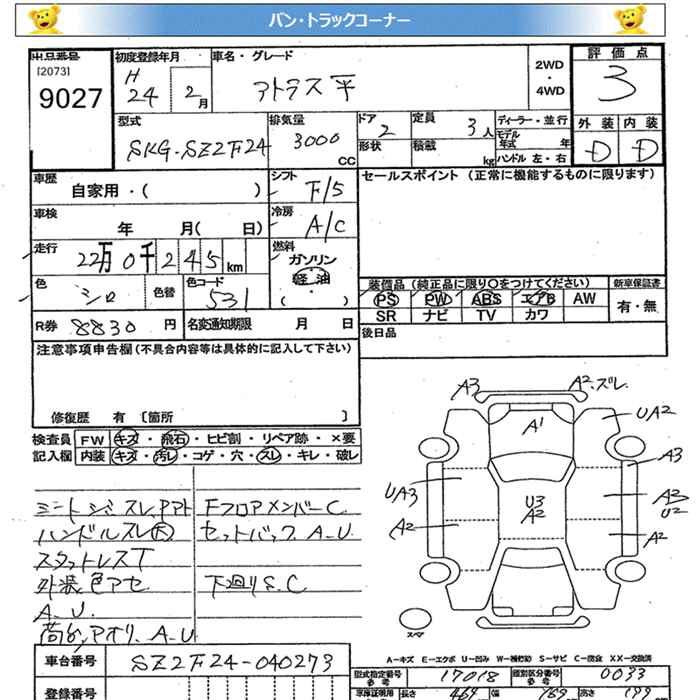 バン・トラックコーナー
出品番号 初度登録年月 車名・グレード 2WD・4WD 評価点
[2073] H
9027 24 2月 アトラス平 3
型式 排気量 ドア 定員 ディーラー・並行 外装 内装
SKG-SZ2F24 3000 CC 2 3人 モデル年式 年 D D
形状 積載 kg ハンドル 左・右
車歴 自家用・( ) シフト F/5 セールスポイント (正常に機能するものに限ります)
車検 年 月( 日) 冷房 A/C
走行 22万0千245km 燃料 ガソリン
軽油
( )
色 シロ 色替 色コード 531
装備品 (純正品に限り○をつけてください) 新車保証書
PS PW ABS エアB AW 有・無
SR ナビ TV カワ
R券 8830円 名変通知期限 月 日 後日品
注意事項申告欄 (不具合内容等は具体的に記入して下さい)
修復歴 有 [箇所 ]
検査員 FW キズ・飛石・ヒビ割・リペア跡・×要
記入欄 内装 キズ・汚レ・コゲ・穴・スレ・キレ・破レ
ハンドルスレ(大) セットバック A-U
スタットレスT
外装色アセ 下廻りS.C
A-U.
荷台,アオリ A-U
Fフロアメンバー C
A3 A2.ズレ
A1 UA2
A3
UA3 U3 A2 A3 U2
A2 A2
スペア
A-キズ E-エクボ U-凹み W-補修跡 S-サビ C-腐食 XX-交換済
車台番号 SZ2F24-040273
型式指定番号 17018 類別区分番号 0033
登録番号 長さ 469 幅 169 高さ 199